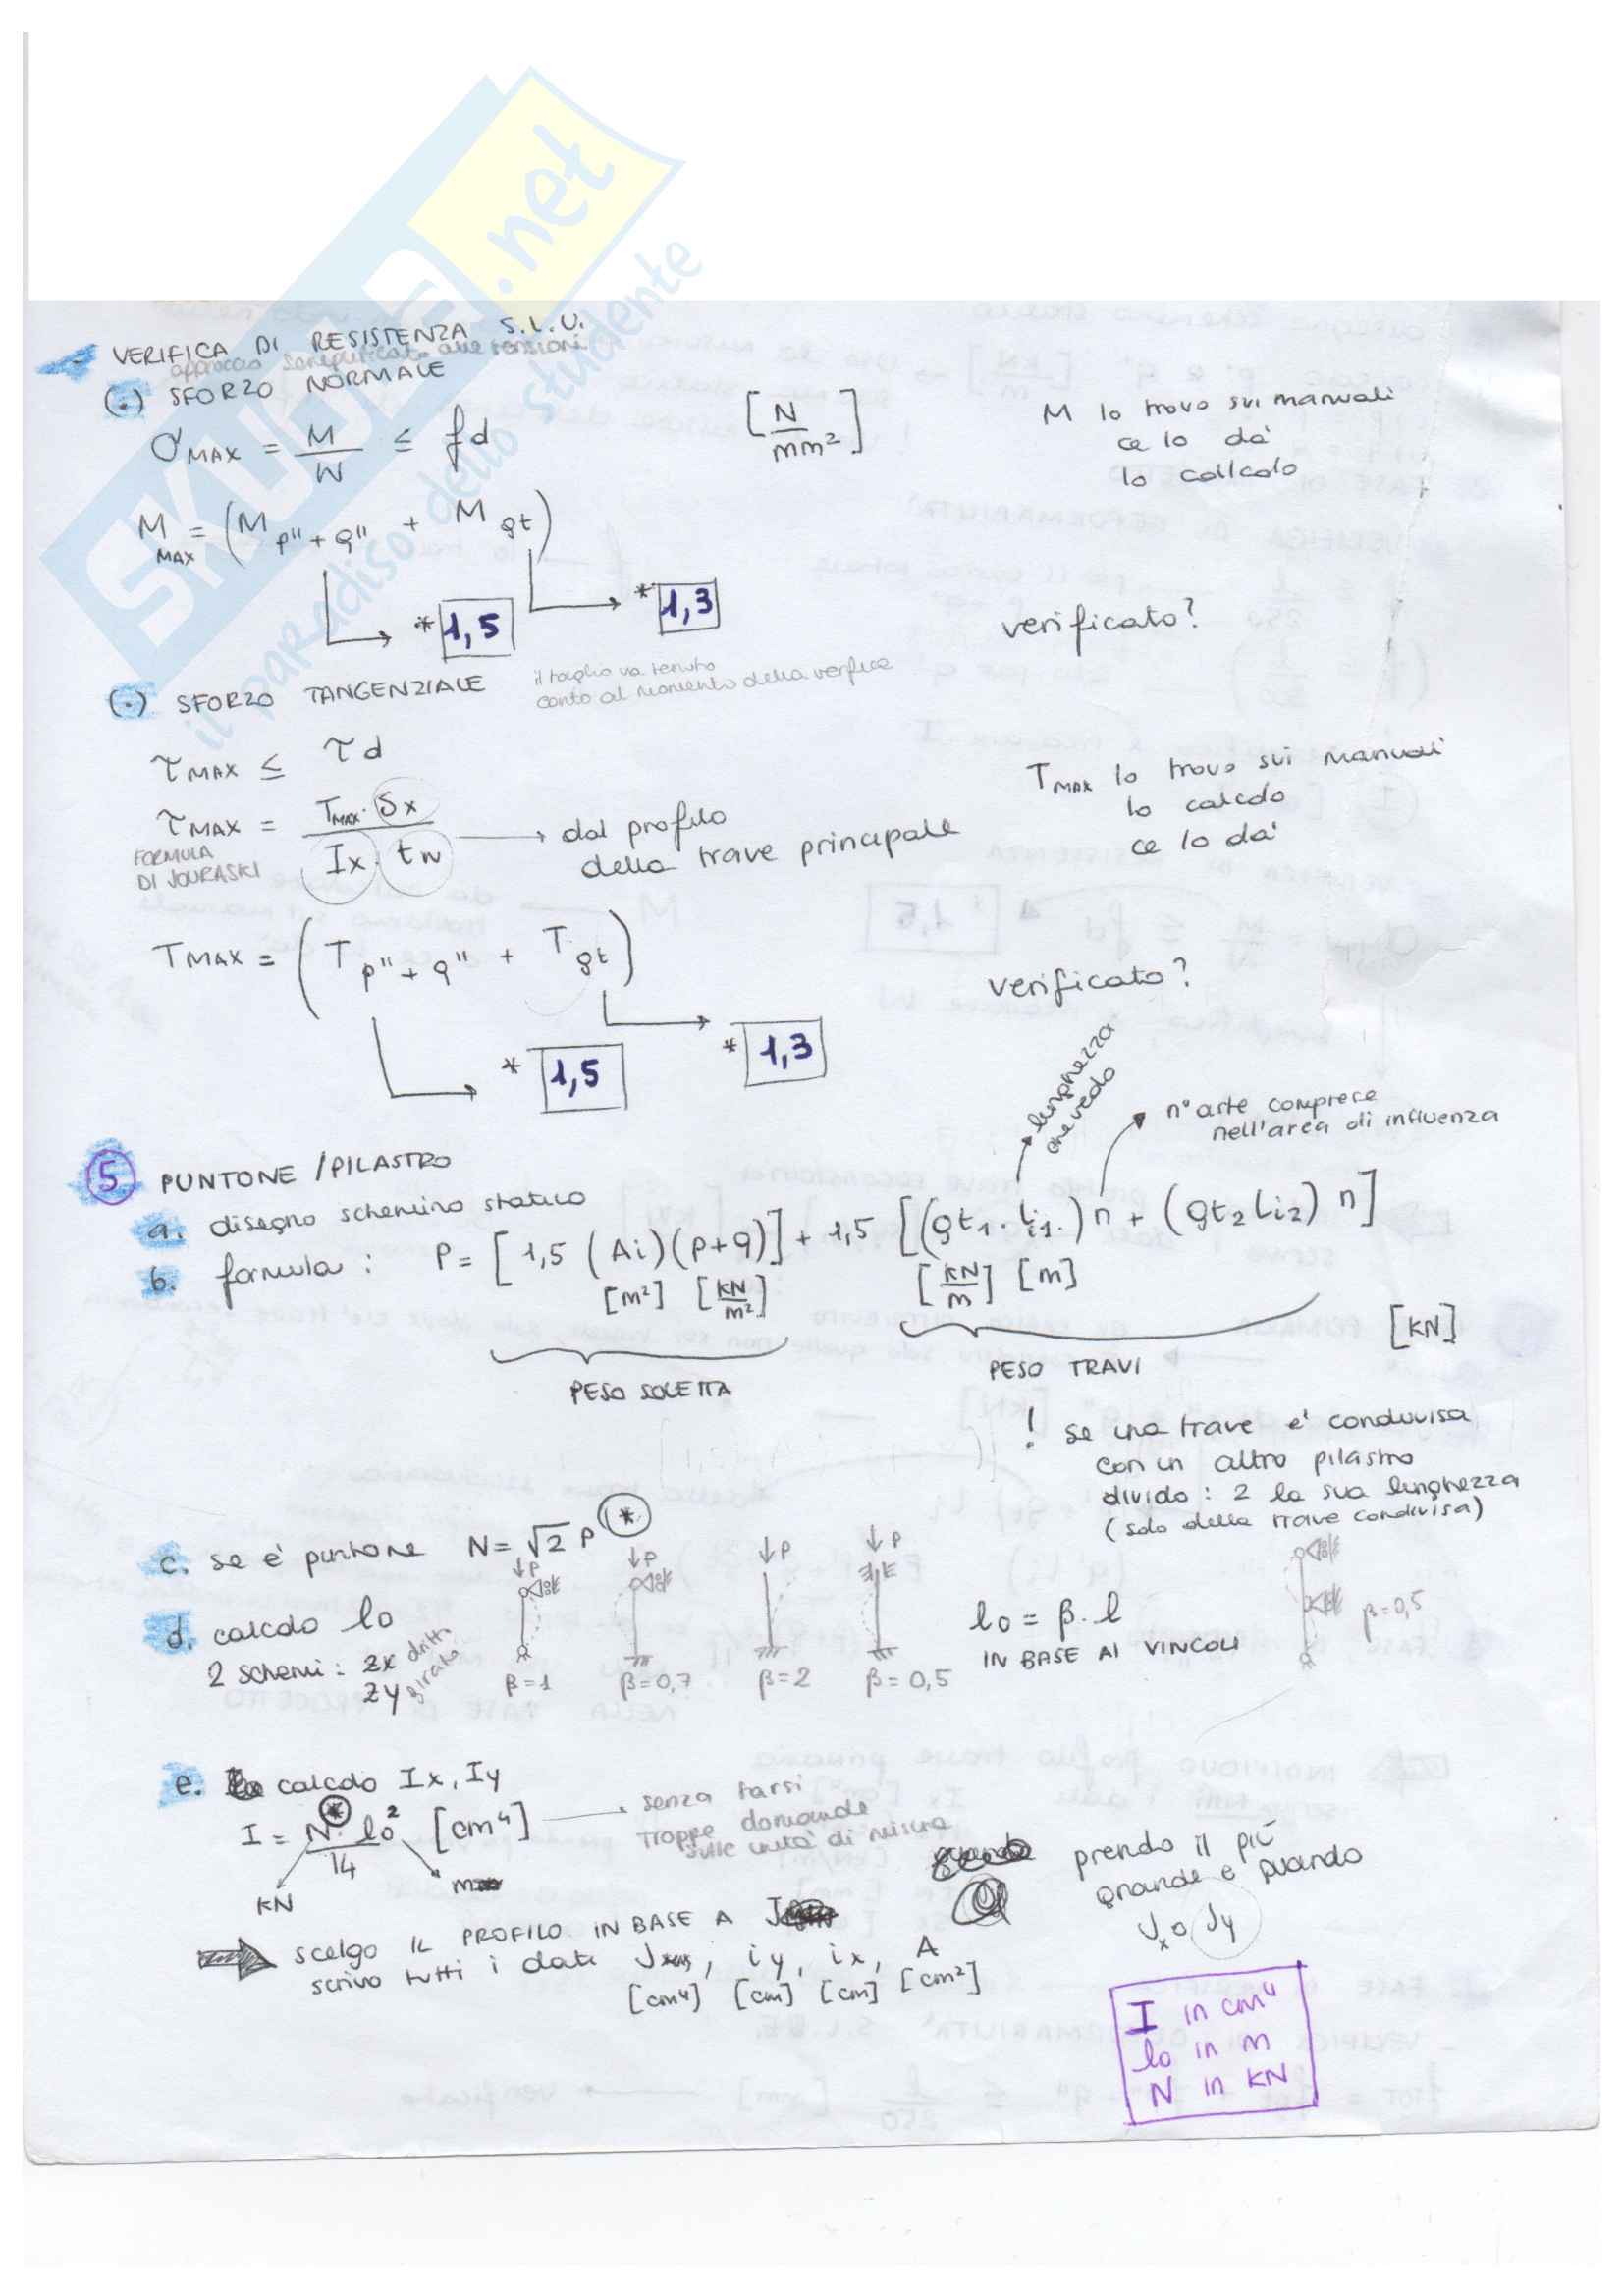 SKUOLA.net
il paradiso dello studente
- VERIFICA DI RESISTENZA S.L.U.
approccio semplificato alle tensioni
(•) SFORZO NORMALE
σMAX = M/W ≤ fd [N/mm²]
M lo trovo sui manuali
ce lo dà
lo callcolo
M MAX = (M p"+q" + M gt)
* 1,5 * 1,3
verificato?
(•) SFORZO TANGENZIALE
il taglio va tenuto
conto al momento della verifica
τMAX ≤ τd
τMAX = TMAX · Sx / Ix · tw → dal profilo
della trave principale
FORMULA
DI JOURASKI
TMAX lo trovo sui manuali
lo calcolo
ce lo dà
TMAX = (T p"+q" + T gt)
verificato?
* 1,5 * 1,3
lunghezza
che vedo
n° aste comprese
nell'area di influenza
5 PUNTONE / PILASTRO
a. disegno schemino statico
b. formula: P = [1,5 (Ai)(p+q)] + 1,5 [(gt1 · Li1.) n + (gt2 Li2) n]
[m²] [kN/m²] [kN/m] [m]
[kN]
PESO SOLETTA
PESO TRAVI
! se una trave e' condivisa
con un altro pilastro
divido : 2 la sua lunghezza
(solo della trave condivisa)
c. se e' puntone N = √2 P *
↓P ↓P ↓P ↓P
d. calcolo lo
2 schemi: zx dritto
zy girato
β=1 β=0,7 β=2 β=0,5
lo = β · l
IN BASE AI VINCOLI
β=0,5
e. calcolo Ix, Iy
I = N* · lo² / 14 [cm⁴] → senza farsi
troppe domande
sulle unità di misura
kN m
prendo il più
grande e quando
Jx o Jy
⇒ scelgo IL PROFILO IN BASE A J
scrivo tutti i dati J, iy, ix, A
[cm⁴] [cm] [cm] [cm²]
I in cm⁴
lo in m
N in kN